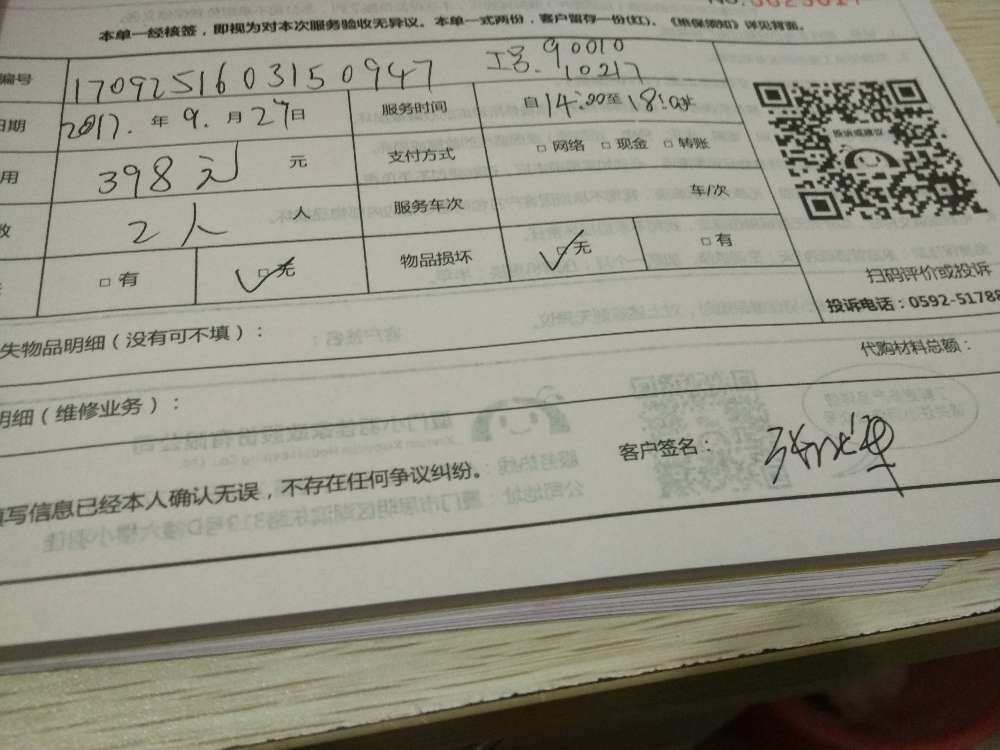 本单一经核签，即视为对本次服务验收无异议。本单一式两份，客户留存一份(红)，《维保须知》详见背面。
编号 1709251603150947 工号.90010
10217
日期 2017.年9.月27日 服务时间 自14:00至18:00止
用 398元 元 支付方式 □网络 □现金 □转账
数 2人 人 服务车次 车/次
□有 □无 物品损坏 □无 □有
投诉或建议
扫码评价或投诉
投诉电话：0592-51788
失物品明细（没有可不填）：
代购材料总额：
明细（维修业务）：
客户签名：
填写信息已经本人确认无误，不存在任何争议纠纷。